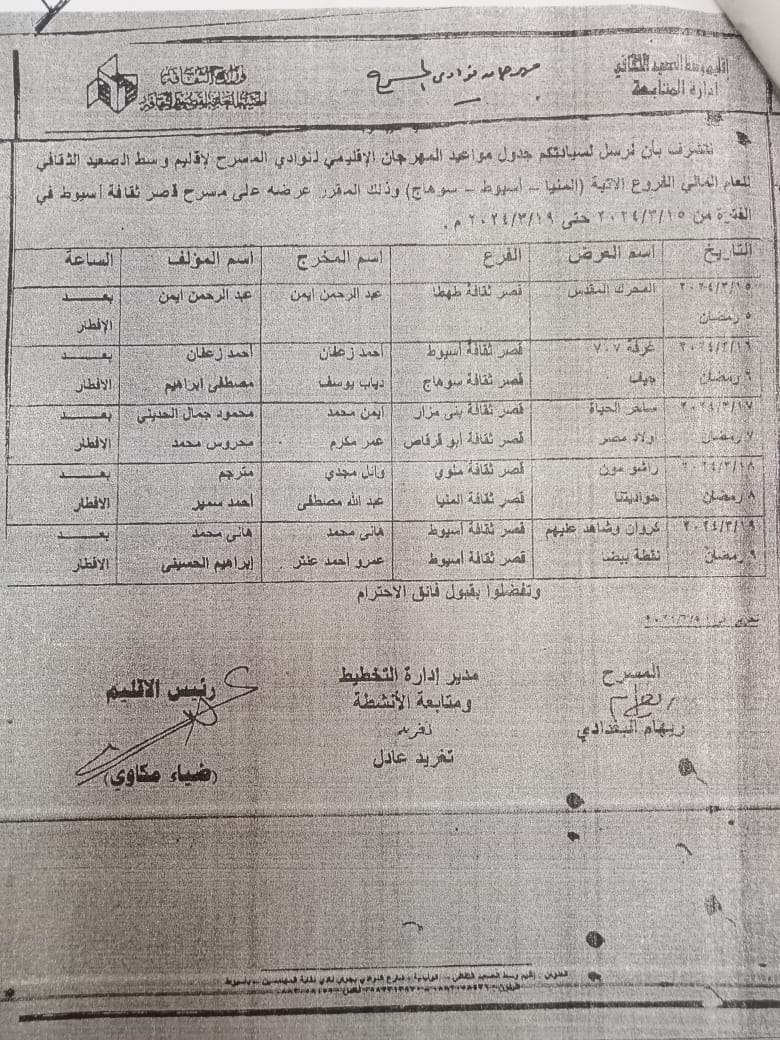 إقليم وسط الصعيد الثقافي
إدارة المتابعة
مهرجان نوادي المسرح
وزارة الثقافة
الهيئة العامة لقصور الثقافة
نتشرف بأن نرسل لسيادتكم جدول مواعيد المهرجان الإقليمي لنوادي المسرح لإقليم وسط الصعيد الثقافي
للعام المالي الفروع الاتية (المنيا – أسيوط – سوهاج) وذلك المقرر عرضه على مسرح قصر ثقافة أسيوط في
الفترة من ٢٠٢٤/٣/١٥ حتى ٢٠٢٤/٣/١٩ م.
التاريخ اسم العرض الفرع اسم المخرج اسم المؤلف الساعة
٢٠٢٤/٣/١٥ المحرك المقدس قصر ثقافة طهطا عبد الرحمن ايمن عبد الرحمن ايمن بعد
٥ رمضان الإفطار
٢٠٢٤/٣/١٦ غرفة ٧٠٧ قصر ثقافة أسيوط أحمد زعفان أحمد زعفان بعد
٦ رمضان قصر ثقافة سوهاج دياب يوسف مصطفى ابراهيم الافطار
٢٠٢٤/٣/١٧ ساحر الحياة قصر ثقافة بنى مزار ايمن محمد محمود جمال الحديني بعد
٧ رمضان اولاد مصر قصر ثقافة أبو قرقاص عمر مكرم محروس محمد الافطار
٢٠٢٤/٣/١٨ راشو مون قصر ثقافة ملوي وائل مجدي مترجم بعد
٨ رمضان حواديتنا قصر ثقافة المنيا عبد الله مصطفى أحمد سمير الافطار
٢٠٢٤/٣/١٩ كروان وشاهد عليهم قصر ثقافة أسيوط هانى محمد هانى محمد بعد
٩ رمضان نقطة بيضا قصر ثقافة أسيوط عمرو أحمد عنتر إبراهيم الحسينى الافطار
وتفضلوا بقبول فائق الاحترام
المسرح
ريهام
ريهام البغدادي
مدير إدارة التخطيط
ومتابعة الأنشطة
تغريد
تغريد عادل
رئيس الاقليم
(ضياء مكاوي)